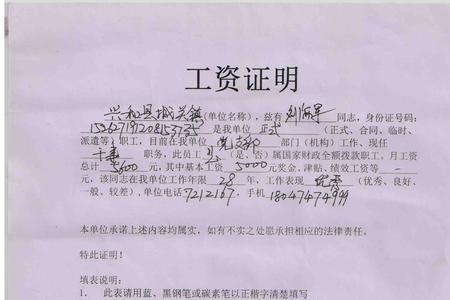 工资证明
兴和县城关镇(单位名称),兹有刘海军同志,身份证号码:
152627191208153735是我单位正式(正式、合同、临时、
派遣等)职工,目前在我单位党支部部门(机构)工作、现任
干事职务,此员工是(是、否)属国家财政全额拨款职工,月工资
总计5600元,其中基本工资5000元奖金,津贴,绩效工资等一
元,该同志在我单位工作年限28年,工作表现优秀(优秀、良好、
一般、较差),单位电话7212167,手机18047474999
本单位承诺上述内容均属实,如有不实之处愿承担相应的法律责任。
特此证明!
填表说明:
1. 此表请用蓝、黑钢笔或碳素笔以正楷字清楚填写